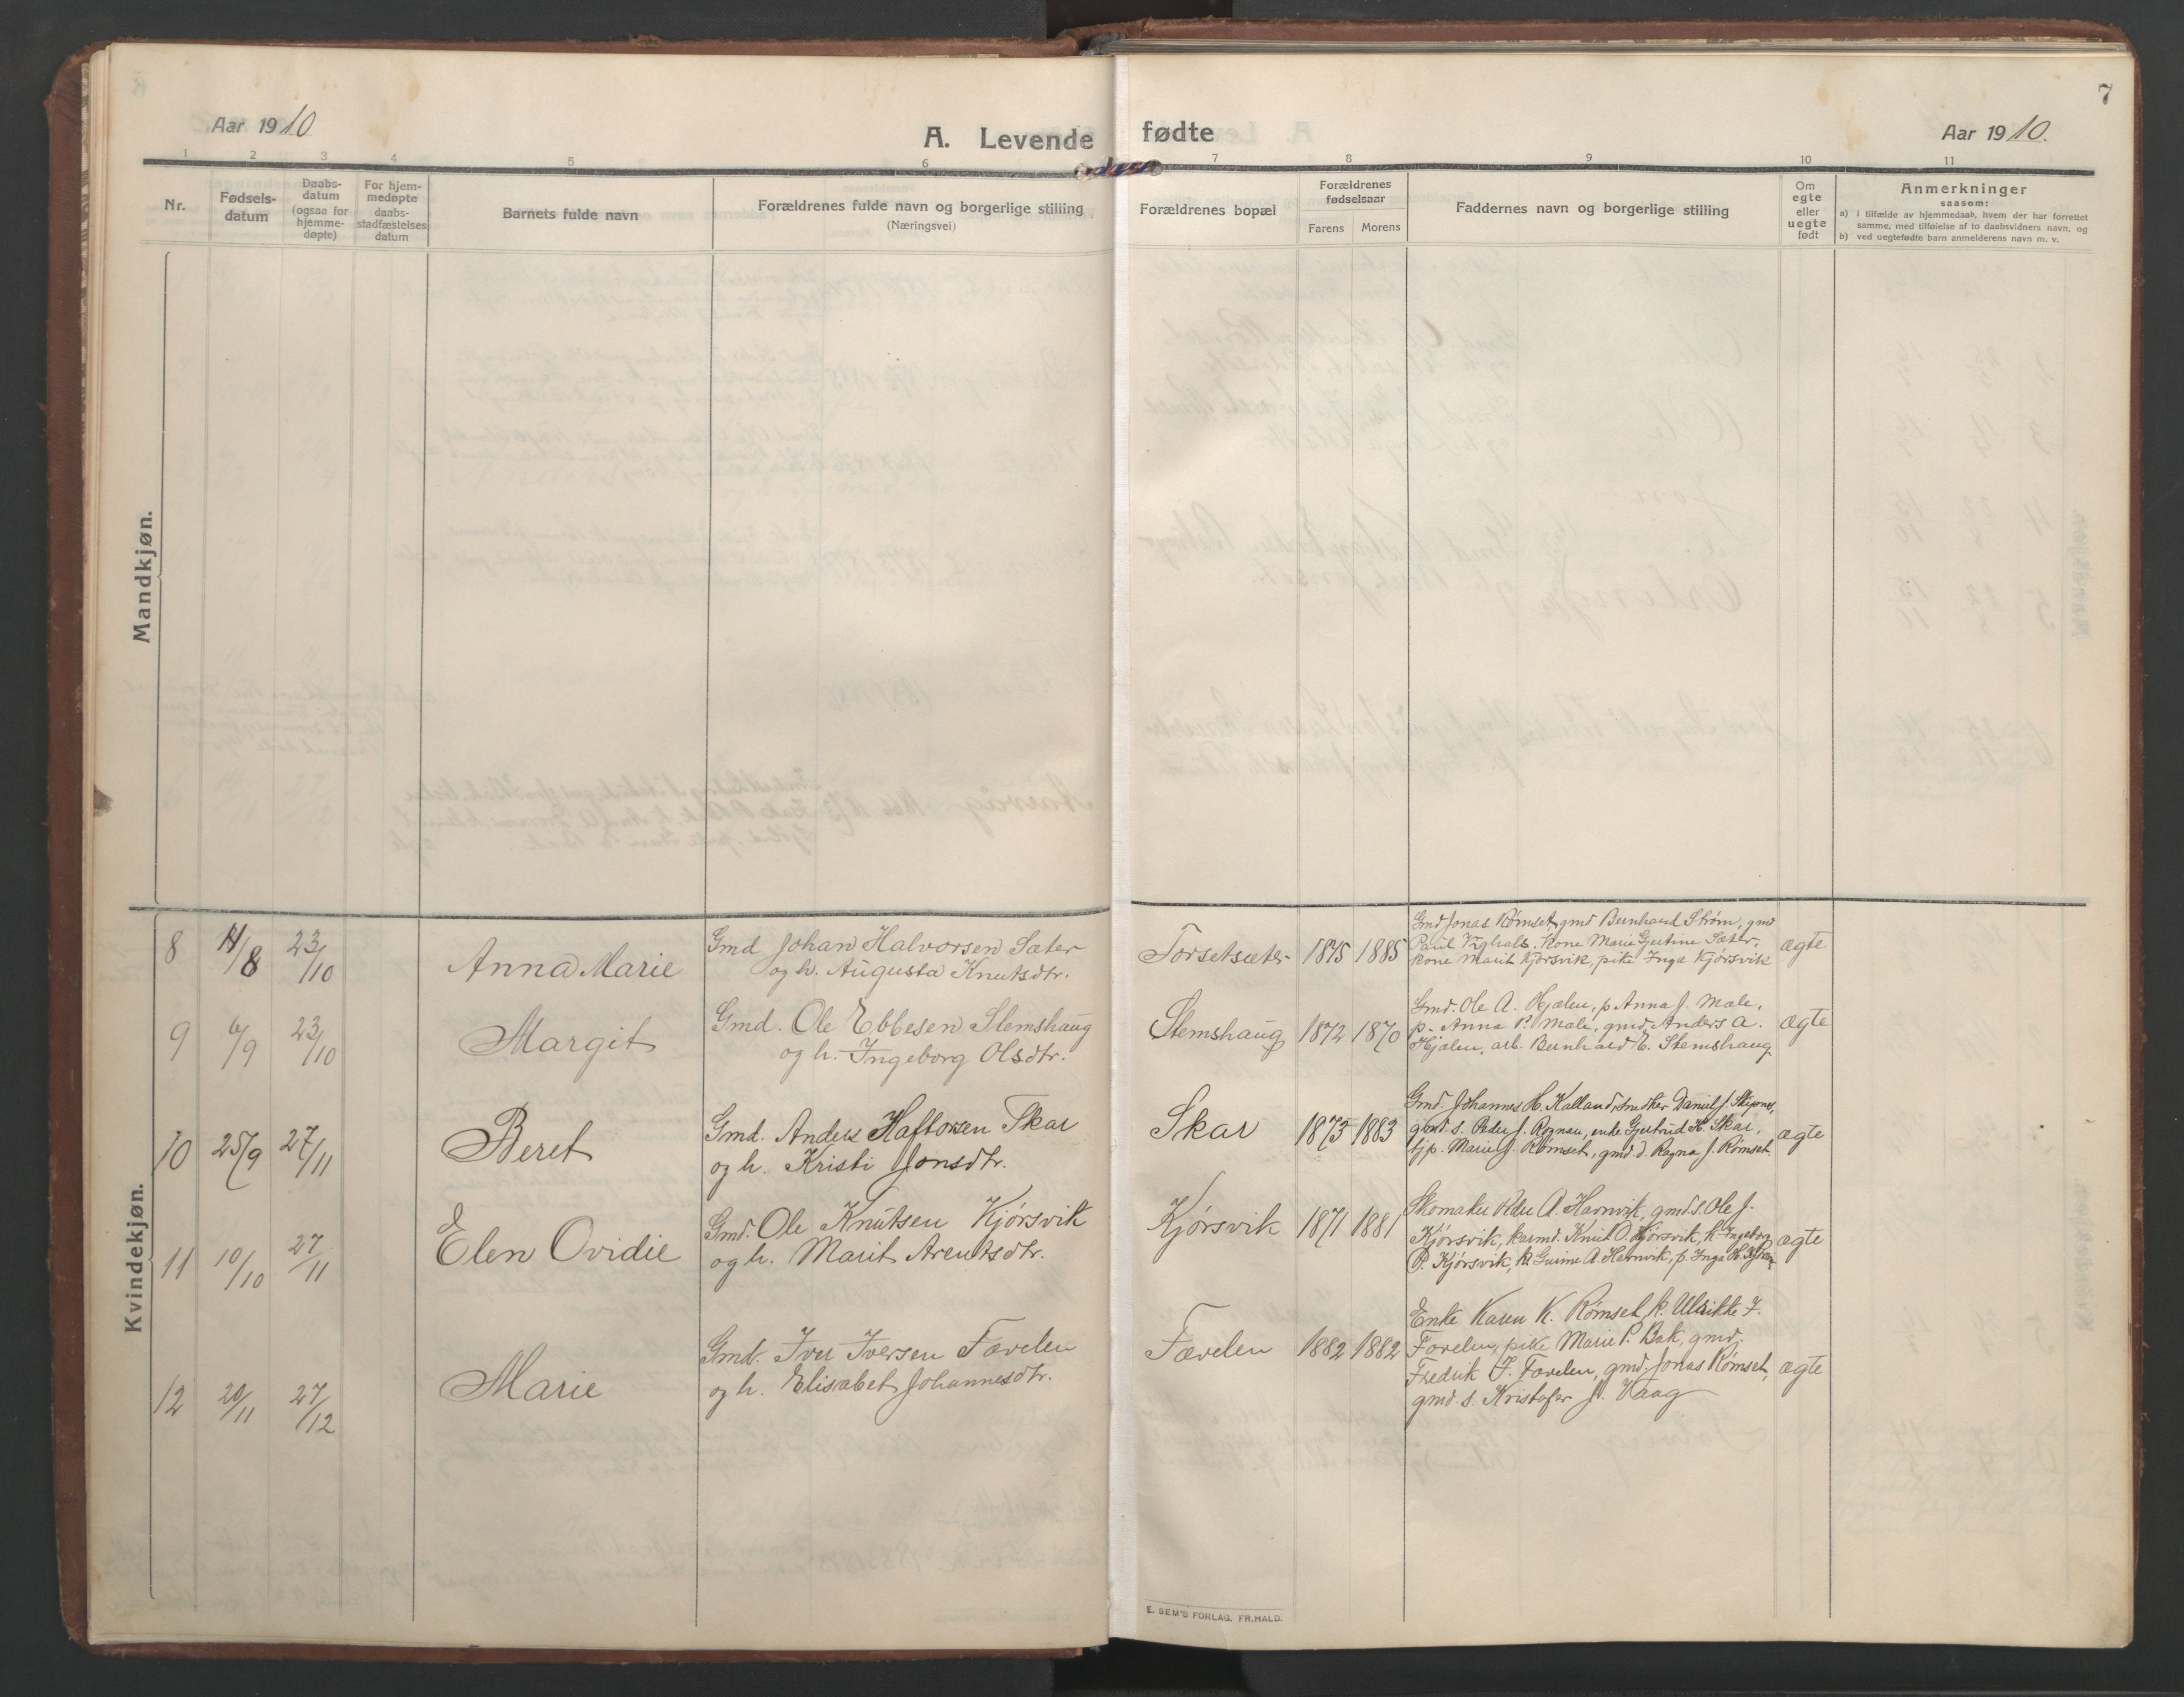 7
Aar 1910.
A. Levende fødte
Aar 1910.
1 2 3 4 5 6 7 8 9 10 11
Nr.
Fødsels-
datum
Daabs-
datum
(ogsaa for
hjemme-
døpte)
For hjem-
medøpte
daabs-
stadfæstelses
datum
Barnets fulde navn
Forældrenes fulde navn og borgerlige stilling
(Næringsvei)
Forældrenes bopæl
Forældrenes
fødselsaar
Farens Morens
Faddernes navn og borgerlige stilling
Om
egte
eller
uegte
født
Anmerkninger
saasom:
a) i tilfælde av hjemmedaab, hvem der har forrettet
samme, med tilføielse af to daabsvidners navn, og
b) ved uegtefødte barn anmelderens navn m. v.
Mandkjøn.
Kvindekjøn.
8 14/8 23/10
Anna Marie
Gmd Johan Halvorsen Sæter
og h. Augusta Knutsdtr.
Torsetsæter 1875 1885
Gmd Jonas Rømset, gmd Bernhard Strøm, gmd
Paul Vighals, kone Marie Gjertine Sæter,
kone Marit Kjørsvik, pike Inga Kjørsvik
ægte
9 6/9 23/10
Margit
Gmd. Ole Ebbesen Stemshaug
og h. Ingeborg Olsdtr.
Stemshaug 1872 1870
Gmd. Ole A. Hjælen, p Anna J. Male,
p. Anna P. Male, gmd. Anders A.
Hjælen, arb. Bernhard E. Stemshaug
ægte
10 25/9 27/11
Beret
Gmd. Anders Haftorsen Skar
og h. Kristi Jonsdtr.
Skar 1873 1883
Gmd. Johannes H. Kalland, Daniel J. Skipnes,
gmd. s. Peder J. Rognau, enke Gjertrud H. Skar,
tjp. Marie J. Rømset, gmd. d. Ragna J. Rømset.
ægte
11 10/10 27/11
Elen Ovidie
Gmd. Ole Knutsen Kjørsvik
og h. Marit Arentsdtr.
Kjørsvik 1871 1881
Skomaker Peder A. Havnvik, gmd. s. Ole J.
Kjørsvik, kaarmd. Knut O. Kjørsvik, k. Ingeborg
P. Kjørsvik, k. A. Havnvik, p. Inga
ægte
12 20/11 27/12
Marie
Gmd. Iver Iversen Færelen
og h. Elisabet Johannesdtr.
Færelen 1882 1882
Enke Karen K. Rømset, k. Ulrikke I.
Forelen, pike Marie P. Bak, gmd.
Fredrik I. Forelen, gmd. Jonas Rømset,
gmd. s. Kristofer J. Vaag
ægte
E. SEM'S FORLAG, FR.HALD.